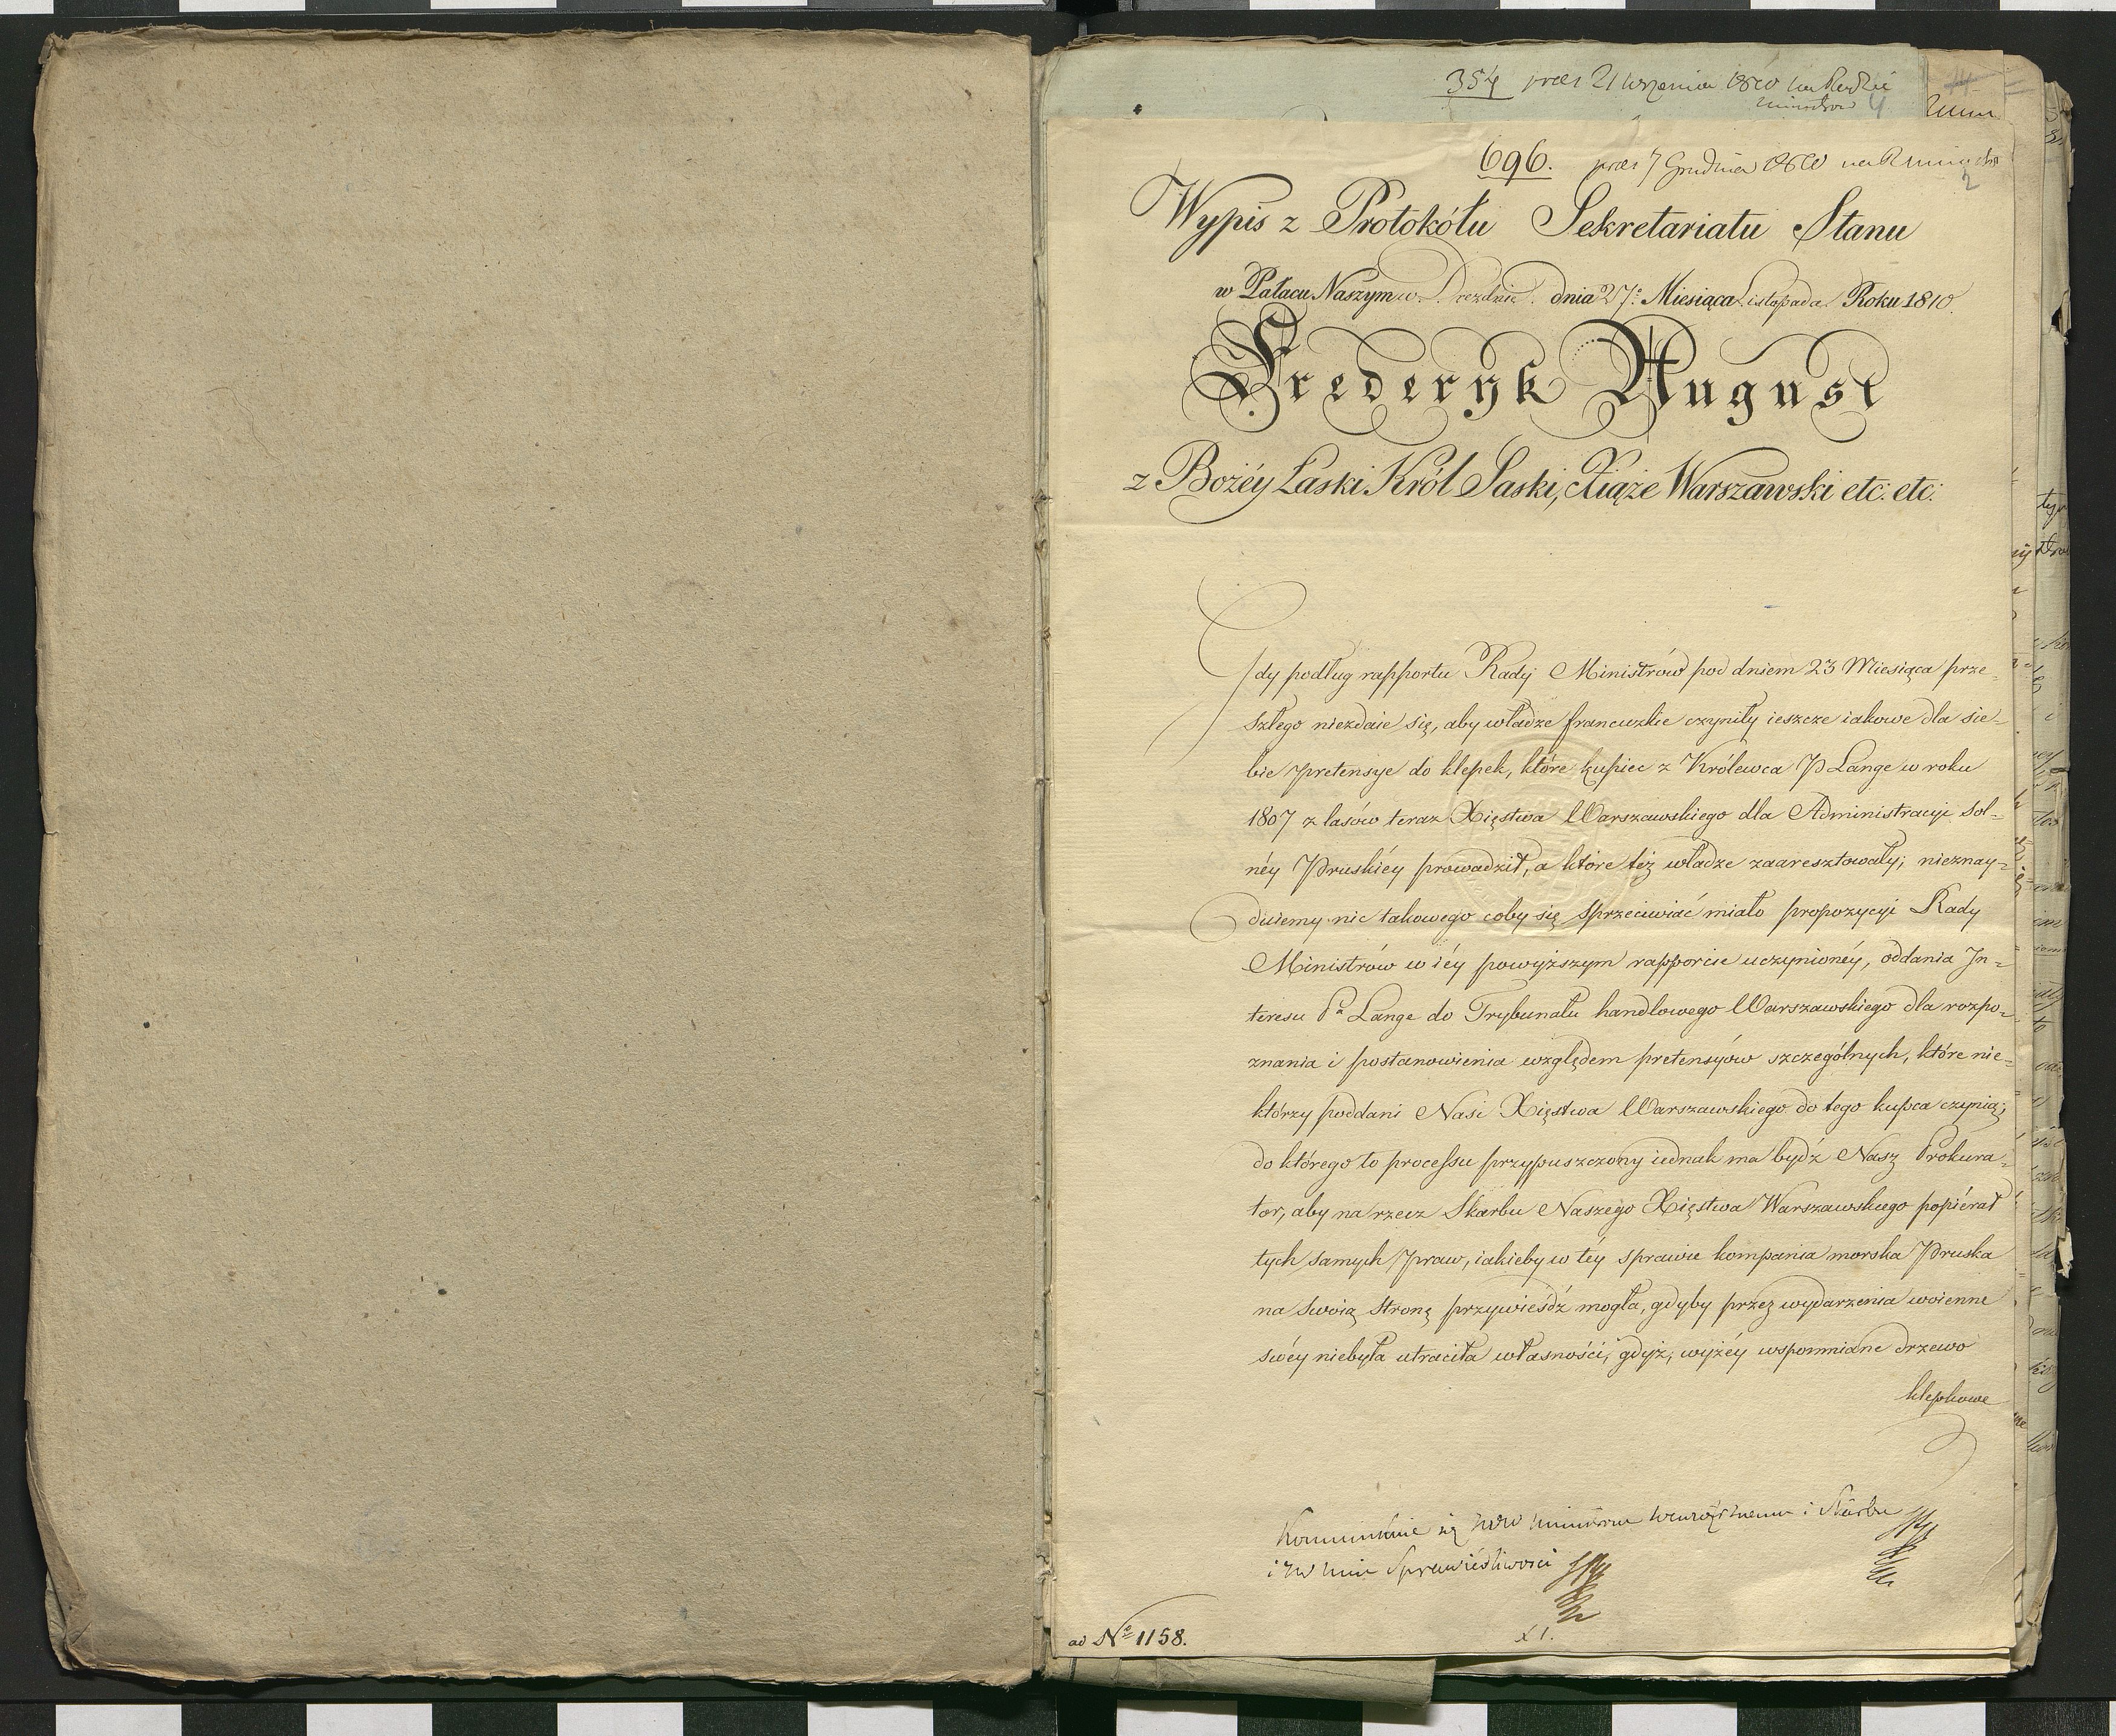 354 prez 21 Września 1810 na Radzie
Ministrów 4
696. prez 7 Grudnia 1810 na R
2
Wypis z Protokółu Sekretariatu Stanu
w Pałacu Naszym w Dreznie dnia 27º Miesiąca Listopada Roku 1810.
Frederyk August
z Bożéy Łaski Król Saski, Xiąże Warszawski etc. etc.
Gdy podług rapportu Rady Ministrów pod dniem 23 Miesiąca prze-
szłego niezdaie się, aby władze francuzkie czyniły ieszcze iakowe dla sie-
bie pretensye do klepek, które kupiec z Królewca P Lange w roku
1807 z lasów teraz Xięstwa Warszawskiego dla Administracyi Sol-
néy Pruskiéy prowadził, a które też władze zaaresztowały; nieznay-
duiemy nic takowego coby się sprzeciwiać miało propozycyi Rady
Ministrów w iéy powyższym rapporcie uczynionéy, oddania In-
teresu Pª Lange do Trybunału handlowego Warszawskiego dla rozpo-
znania i postanowienia względem pretensyów szczególnych, które nie-
którzy poddani Nasi Xięstwa Warszawskiego do tego kupca czynią;
do którego to processu przypuszczony iednak ma bydź Nasz Prokura-
tor, aby na rzecz Skarbu Naszego Xięstwa Warszawskiego popiérał
tych samych praw, iakieby w téy sprawie kompania morska Pruska
na swoią stronę przywieśdź mogła, gdyby przez wydarzenia woienne
swéy niebyła utraciła własności; gdyż, wyżéy wspomniane drzewo
klepkowe
się i Skarbu
i Sprawiedliwości
ad Nº 1158.